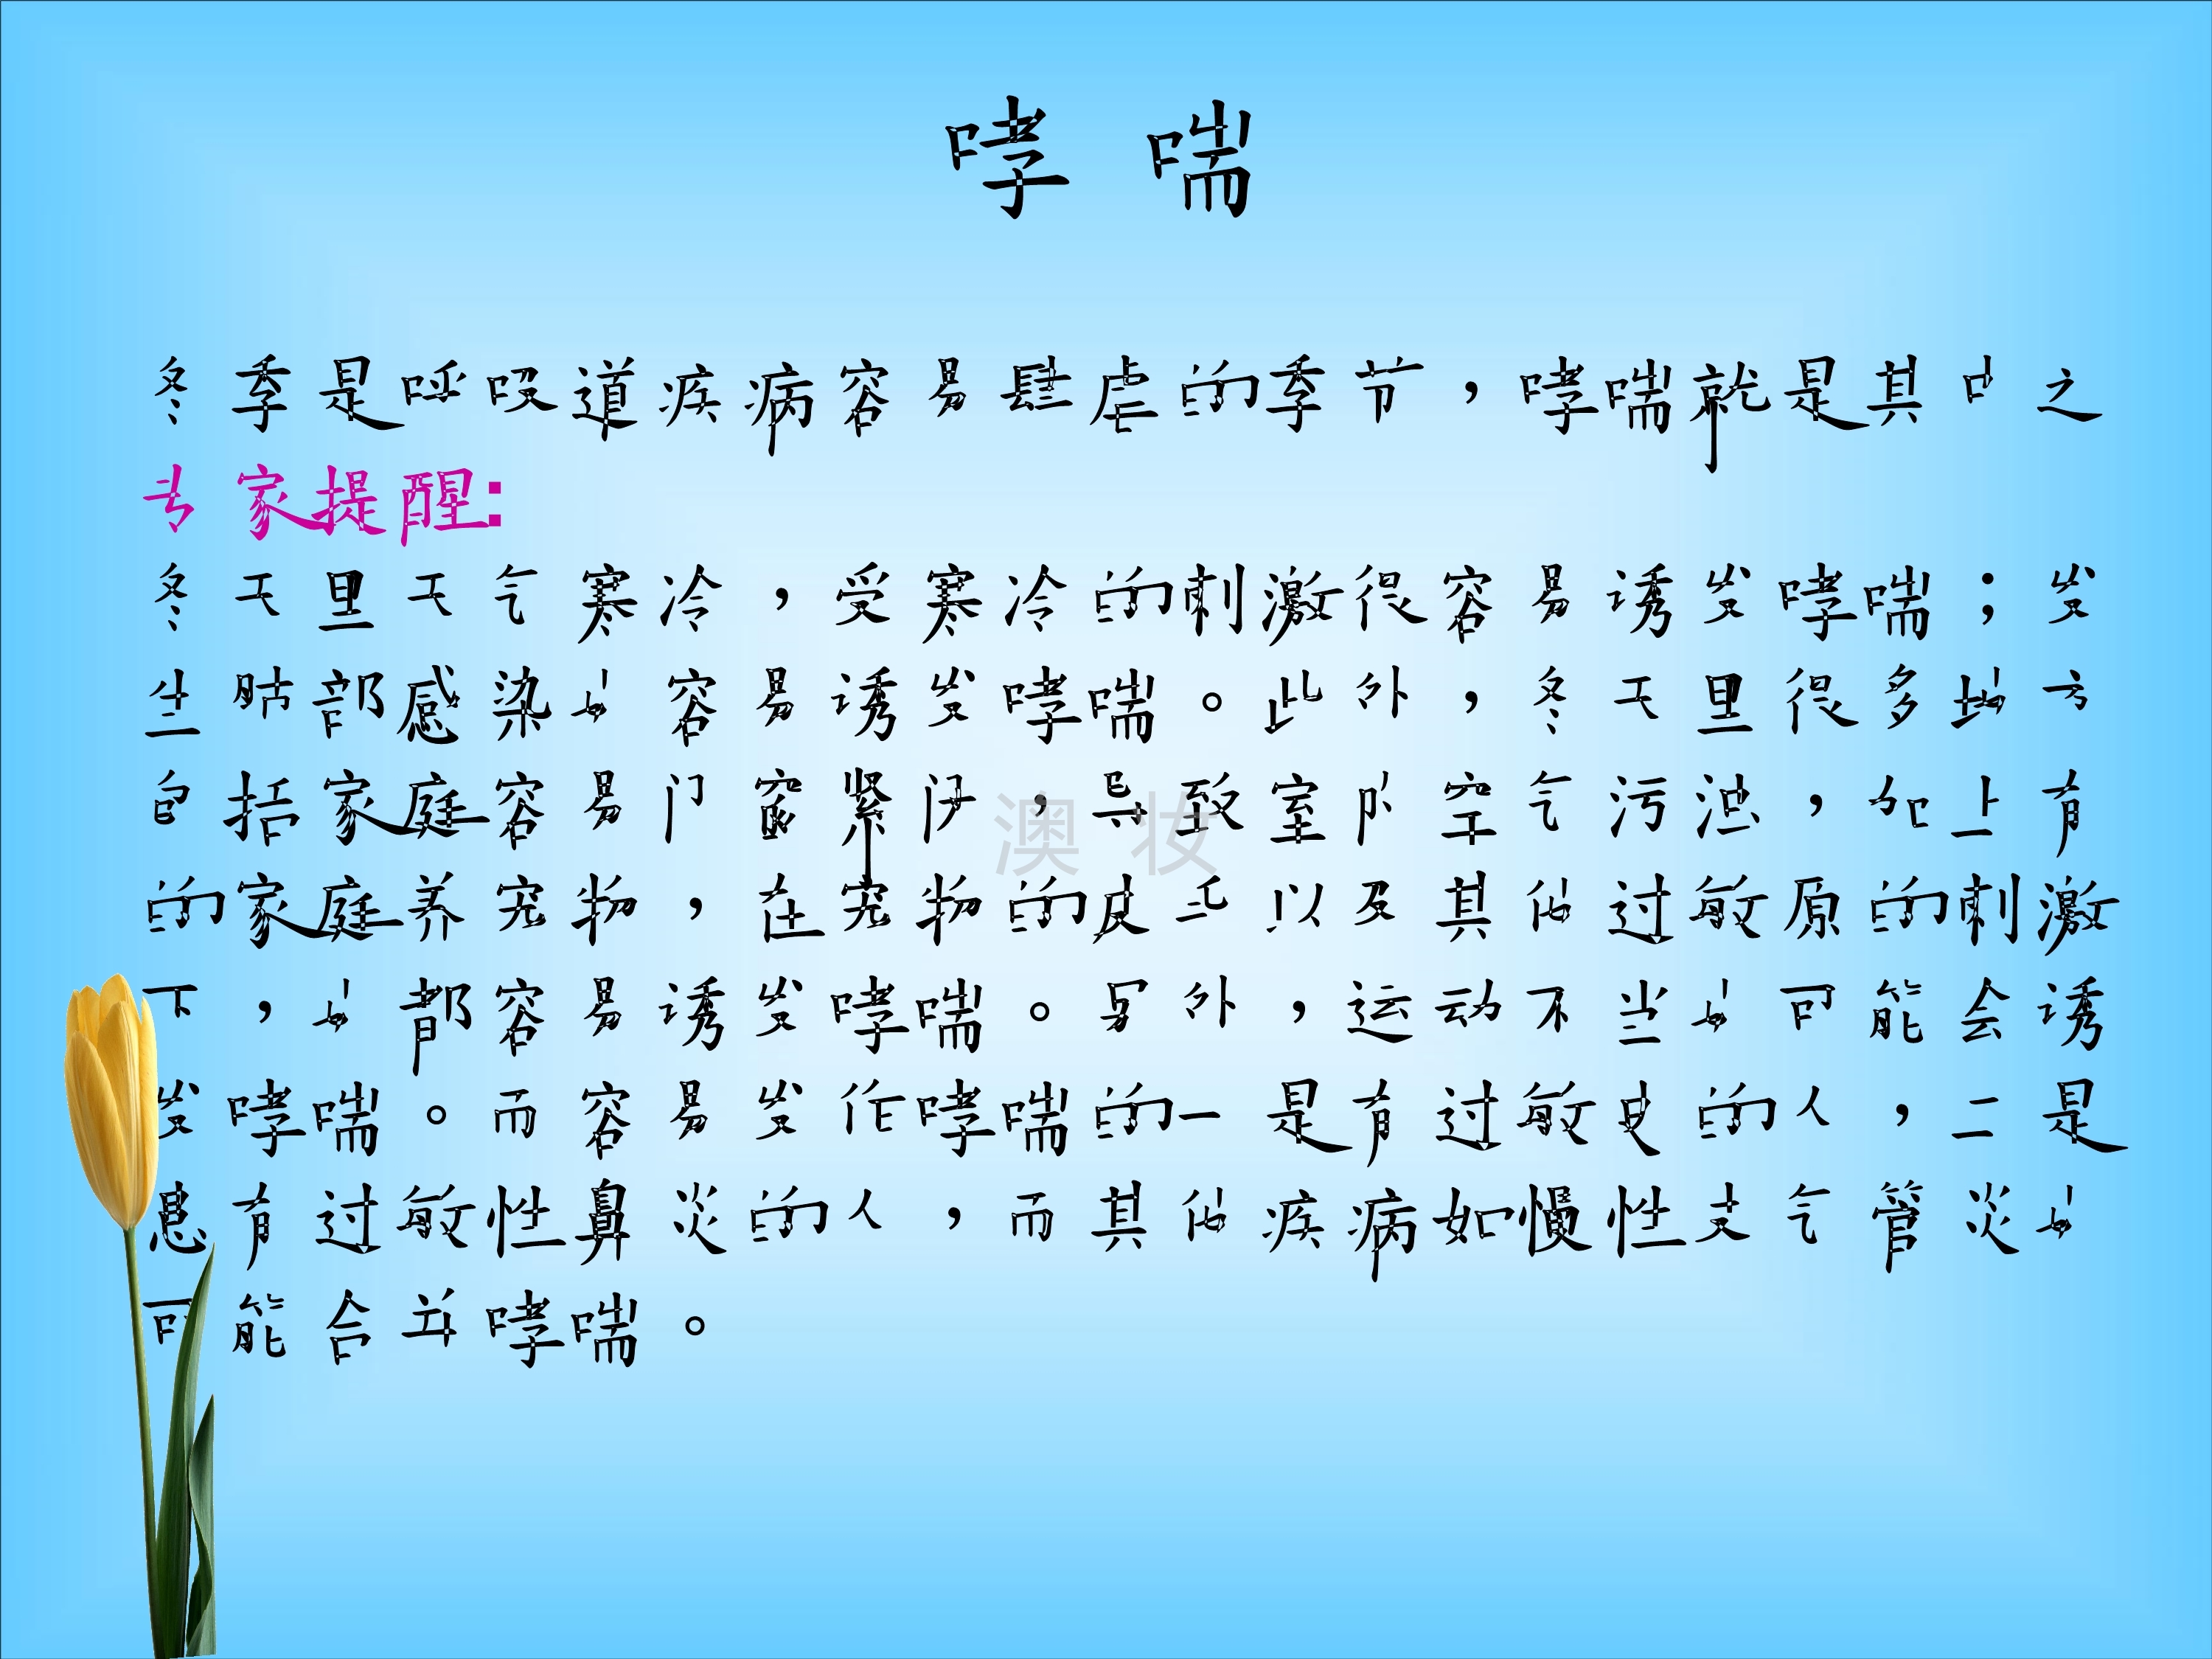 哮 喘
冬季是呼吸道疾病容易肆虐的季节，哮喘就是其中之
专家提醒:
冬天里天气寒冷，受寒冷的刺激很容易诱发哮喘；发
生肺部感染也容易诱发哮喘。此外，冬天里很多地方
包括家庭容易门窗紧闭，导致室内空气污浊，加上有
的家庭养宠物，在宠物的皮毛以及其他过敏原的刺激
下，也都容易诱发哮喘。另外，运动不当也可能会诱
发哮喘。而容易发作哮喘的一是有过敏史的人，二是
患有过敏性鼻炎的人，而其他疾病如慢性支气管炎也
可能合并哮喘。
澳 妆